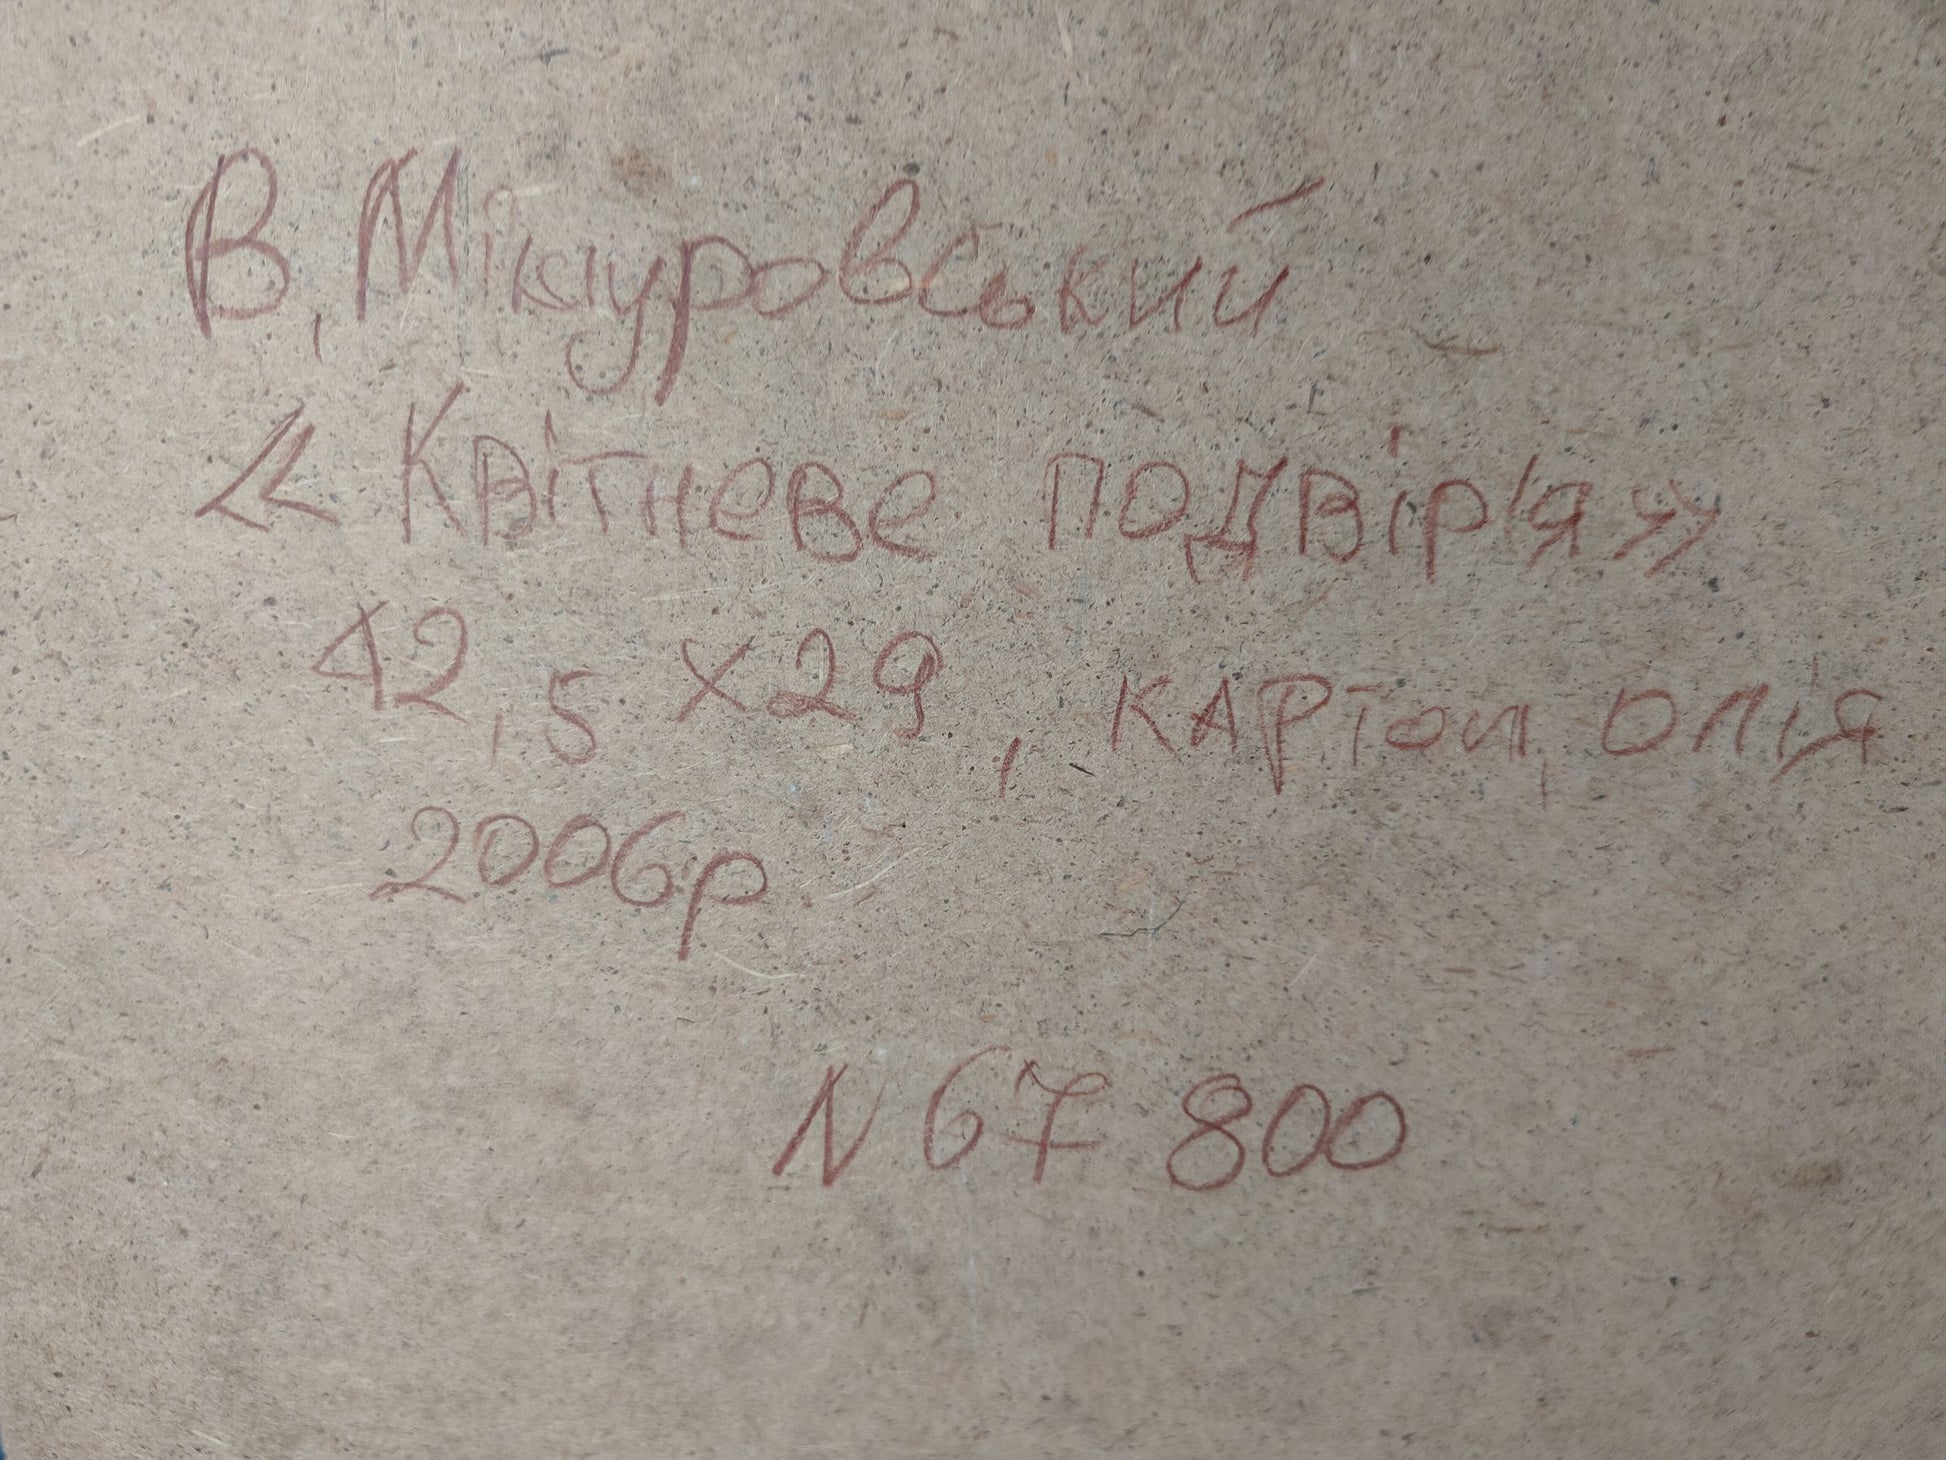 В. Мікіуровський
« Квітневе подвір'я »
42,5 x 29, картон, олія
2006р
N 67 800